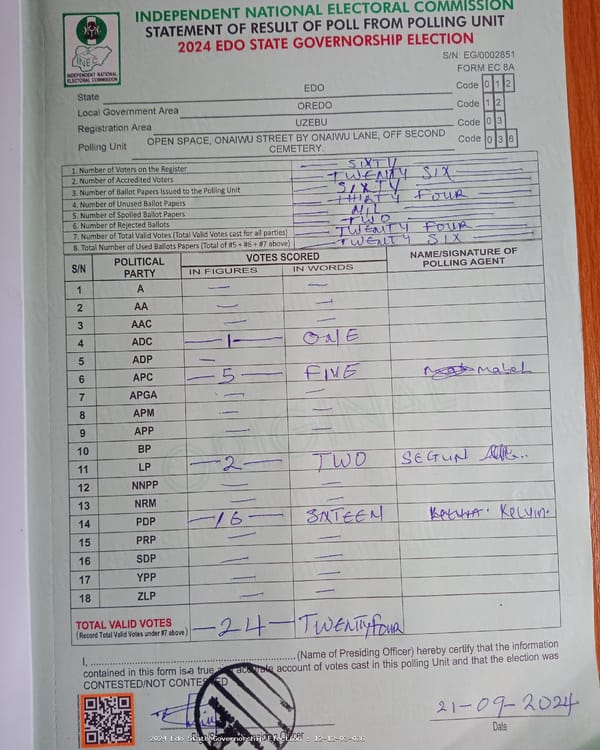 INDEPENDENT NATIONAL ELECTORAL COMMISSION
STATEMENT OF RESULT OF POLL FROM POLLING UNIT
2024 EDO STATE GOVERNORSHIP ELECTION
INEC
INDEPENDENT NATIONAL
ELECTORAL COMMISSION
S/N: EG/0002851
FORM EC 8A
State EDO Code 0 1 2
Local Government Area OREDO Code 1 2
Registration Area UZEBU Code 0 3
Polling Unit OPEN SPACE, ONAIWU STREET BY ONAIWU LANE, OFF SECOND CEMETERY. Code 0 3 6
1. Number of Voters on the Register SIXTY
2. Number of Accredited Voters TWENTY SIX
3. Number of Ballot Papers Issued to the Polling Unit SIXTY
4. Number of Unused Ballot Papers THIRTY FOUR
5. Number of Spoiled Ballot Papers NIL
6. Number of Rejected Ballots TWO
7. Number of Total Valid Votes (Total Valid Votes cast for all parties) TWENTY FOUR
8. Total Number of Used Ballots Papers (Total of #5 + #6 + #7 above) TWENTY SIX
S/N POLITICAL PARTY VOTES SCORED NAME/SIGNATURE OF POLLING AGENT
IN FIGURES IN WORDS
1 A — —
2 AA — —
3 AAC — —
4 ADC —1— ONE
5 ADP —
6 APC —5— FIVE Mabel
7 APGA — —
8 APM — —
9 APP — —
10 BP
11 LP —2— TWO SEGUN
12 NNPP — —
13 NRM — —
14 PDP —16— SIXTEEN Kelvin.
15 PRP — —
16 SDP — —
17 YPP — —
18 ZLP — —
TOTAL VALID VOTES —24— TWENTY four
(Record Total Valid Votes under #7 above)
I, ............................................................(Name of Presiding Officer) hereby certify that the information
contained in this form is a true and accurate account of votes cast in this polling Unit and that the election was
CONTESTED/NOT CONTESTED
21-09-2024
Date
2024 Edo State Governorship Election : 12-12-03-036